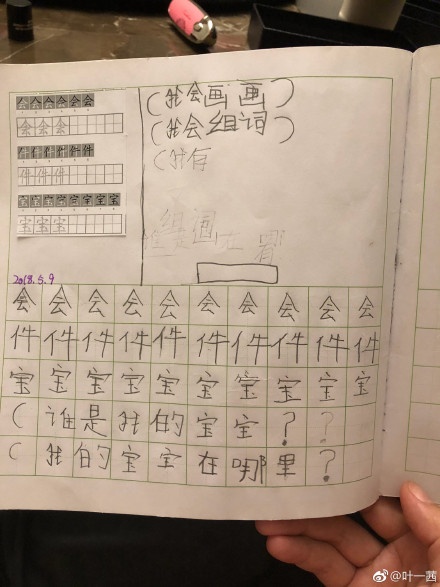 会会会会会会会
会会会
件件件件件件件
件件件
宝宝宝宝宝宝宝宝
宝宝宝
(我会画画)
(我会组词)
(我有
组词
2018.5.9
会会会会会会会会会会
件件件件件件件件件件
宝宝宝宝宝宝宝宝宝宝
(谁是我的宝宝??
(我的宝宝在哪里?
@叶一茜